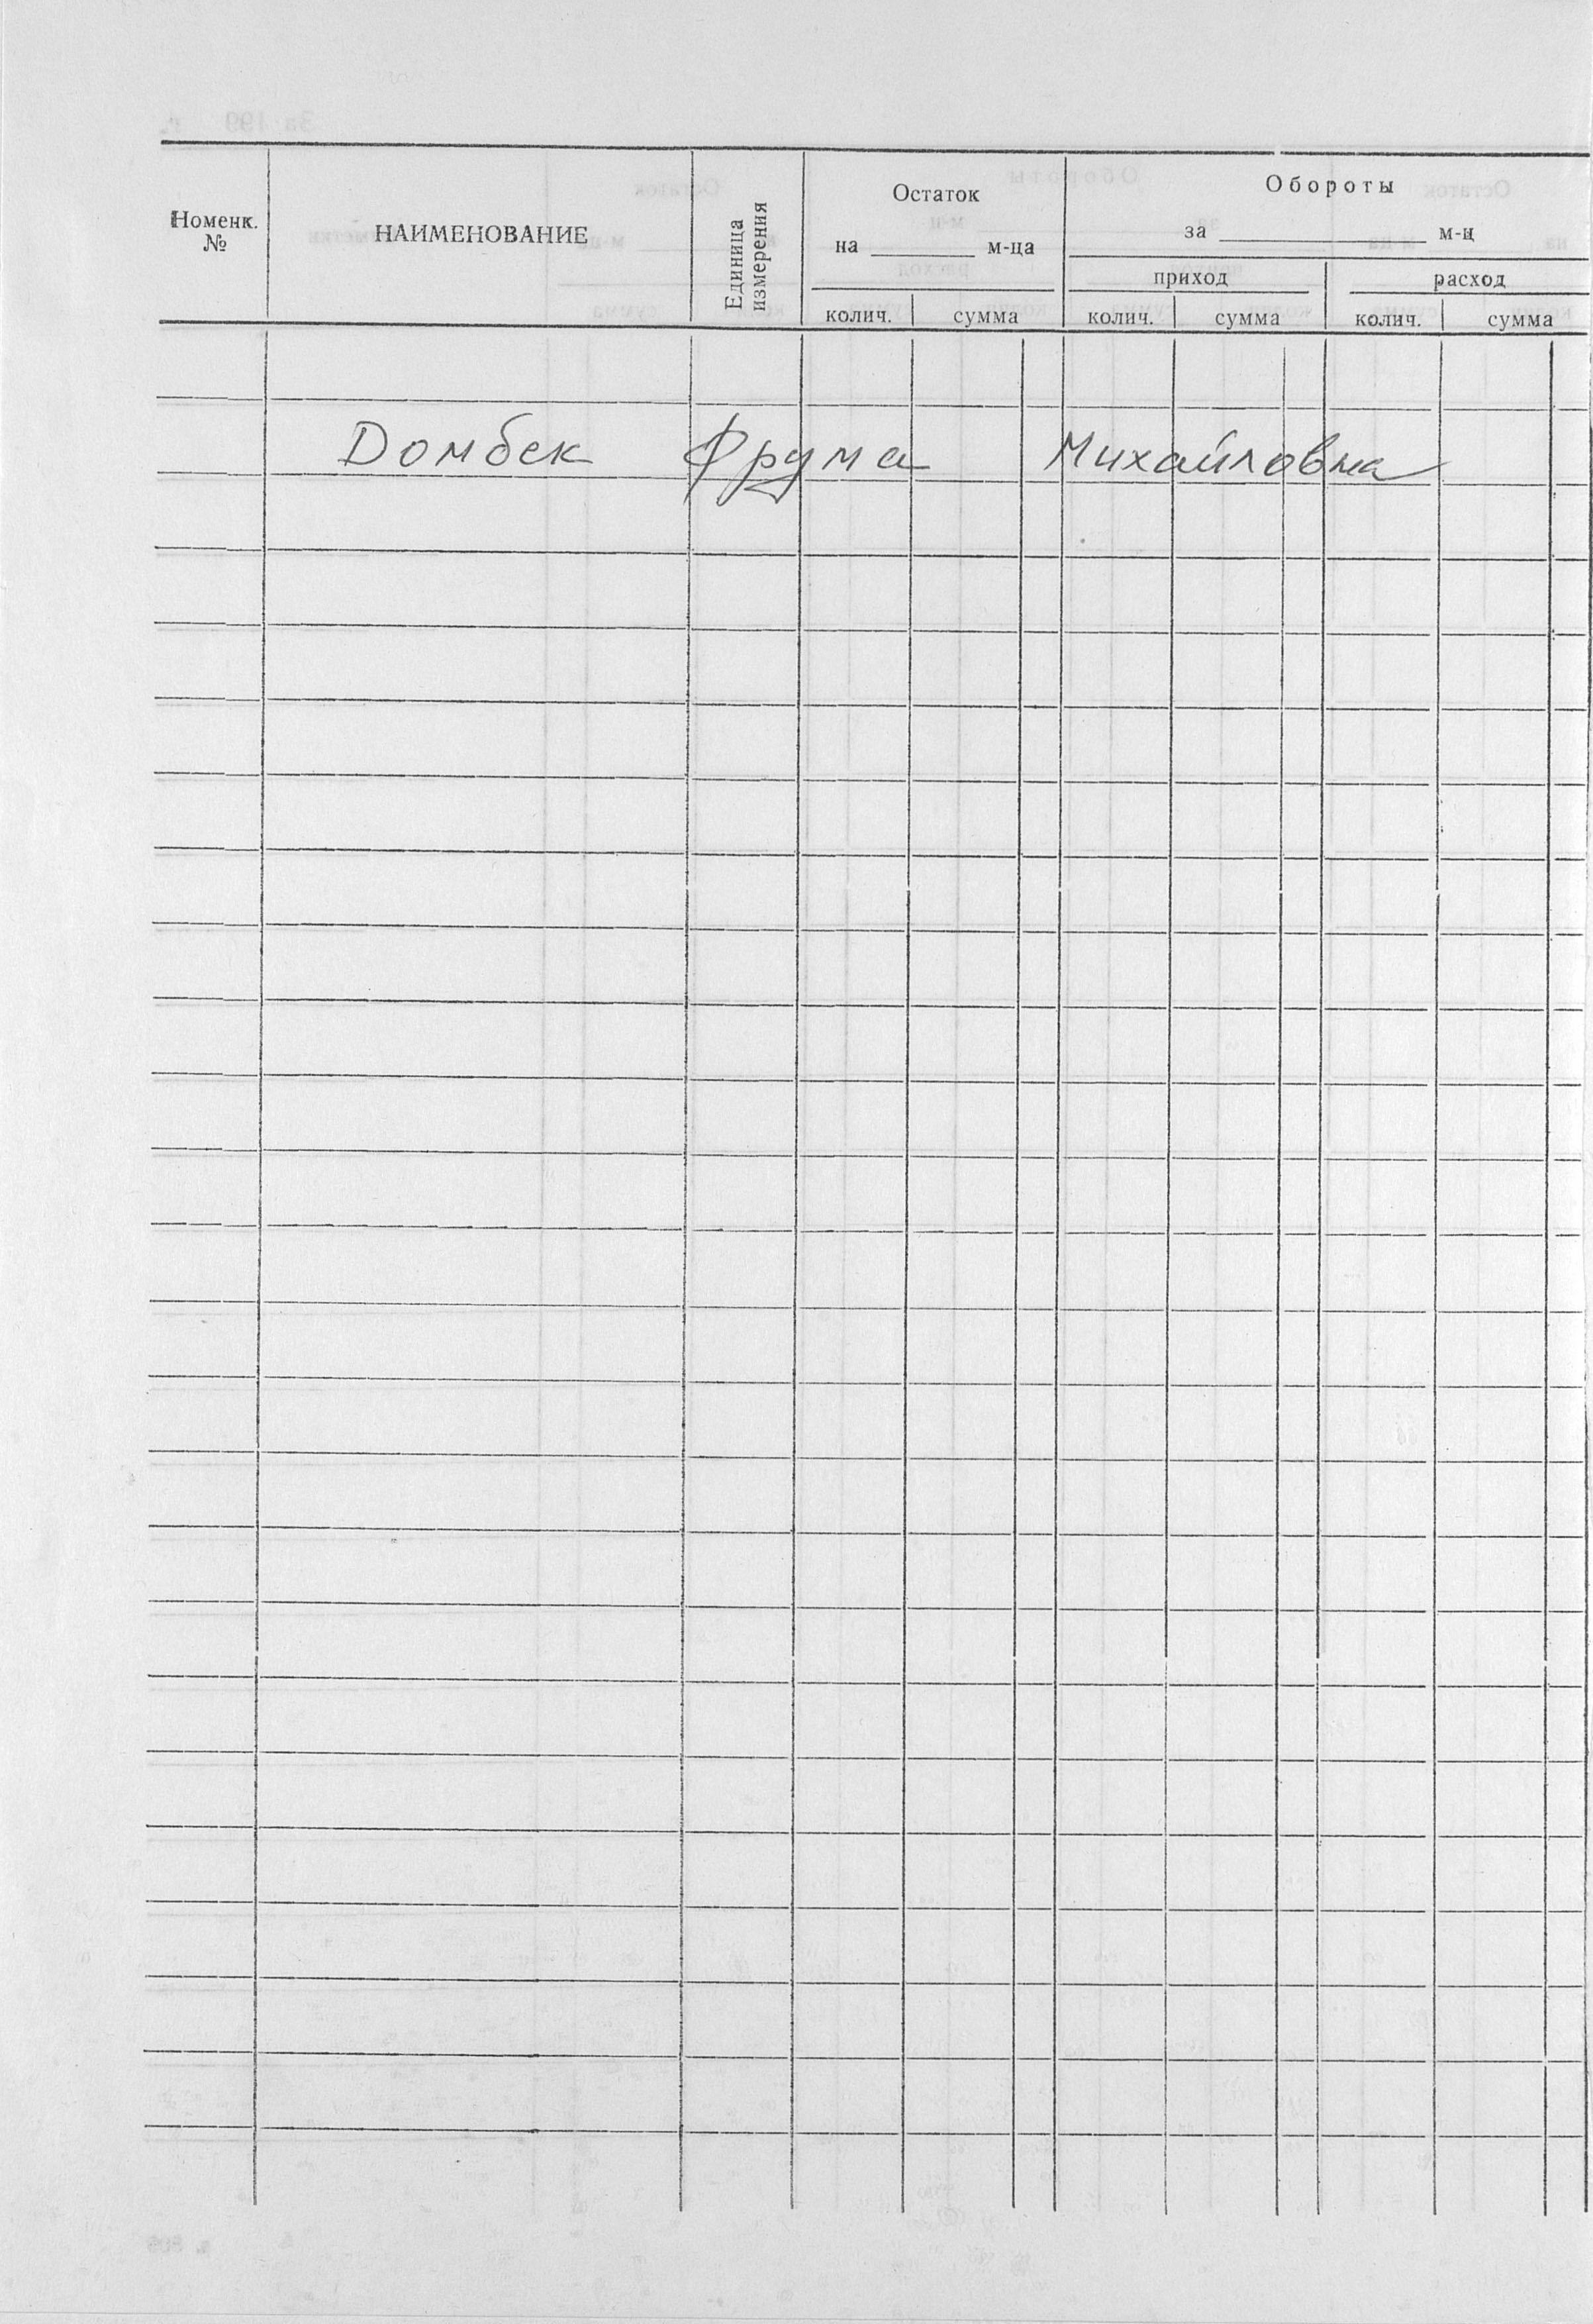 Номенк. №
НАИМЕНОВАНИЕ
Единица измерения
Остаток
на ______ м-ца
колич. сумма
Обороты
за ______ м-ц
приход расход
колич. сумма колич. сумма
Домбек Фрума Михайловна